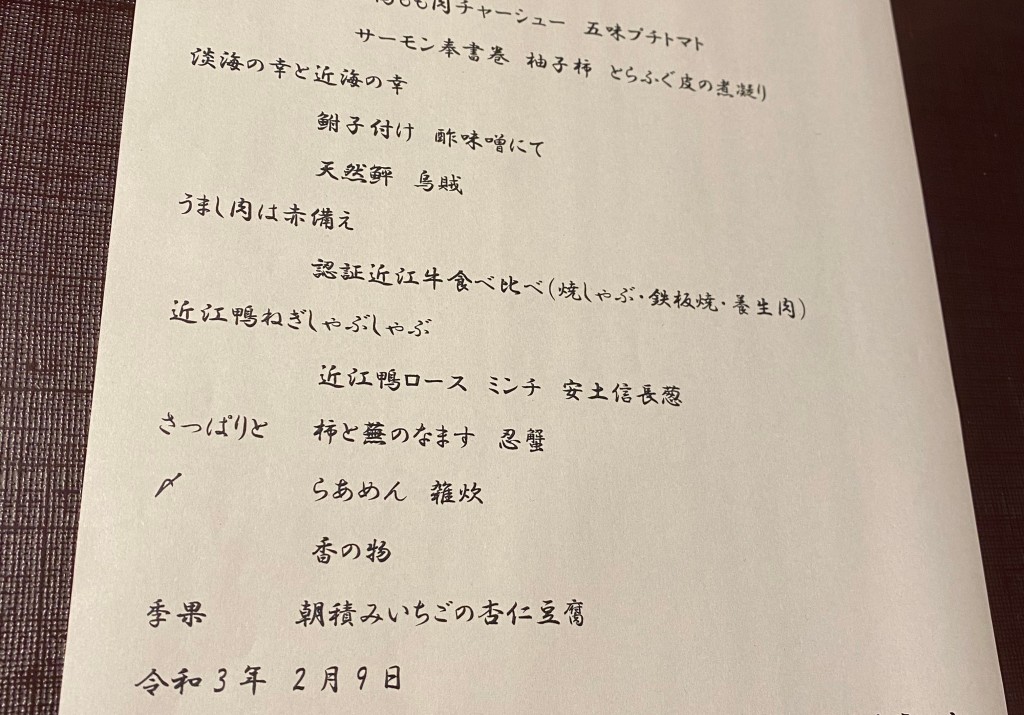 もも肉チャーシュー 五味プチトマト
サーモン奉書巻 柚子柿 とらふぐ皮の煮凝り
淡海の幸と近海の幸
鮒子付け 酢味噌にて
天然鮃 烏賊
うまし肉は赤備え
認証近江牛食べ比べ(焼しゃぶ・鉄板焼・養生肉)
近江鴨ねぎしゃぶしゃぶ
近江鴨ロース ミンチ 安土信長葱
さっぱりと 柿と蕪のなます 忍蟹
〆 らあめん 雑炊
香の物
季果 朝積みいちごの杏仁豆腐
令和3年 2月9日